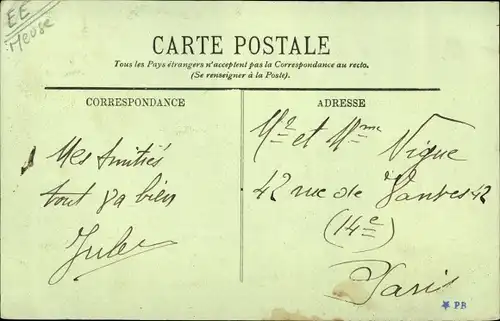 EE
Meuse
CARTE POSTALE
Tous les Pays étrangers n'acceptent pas la Correspondance au recto.
(Se renseigner à la Poste).
CORRESPONDANCE
Mes Amitiés
tout va bien
Jules
ADRESSE
Mr et Mme Vigue
42 rue de Vanves 42
(14e)
Paris
* PB